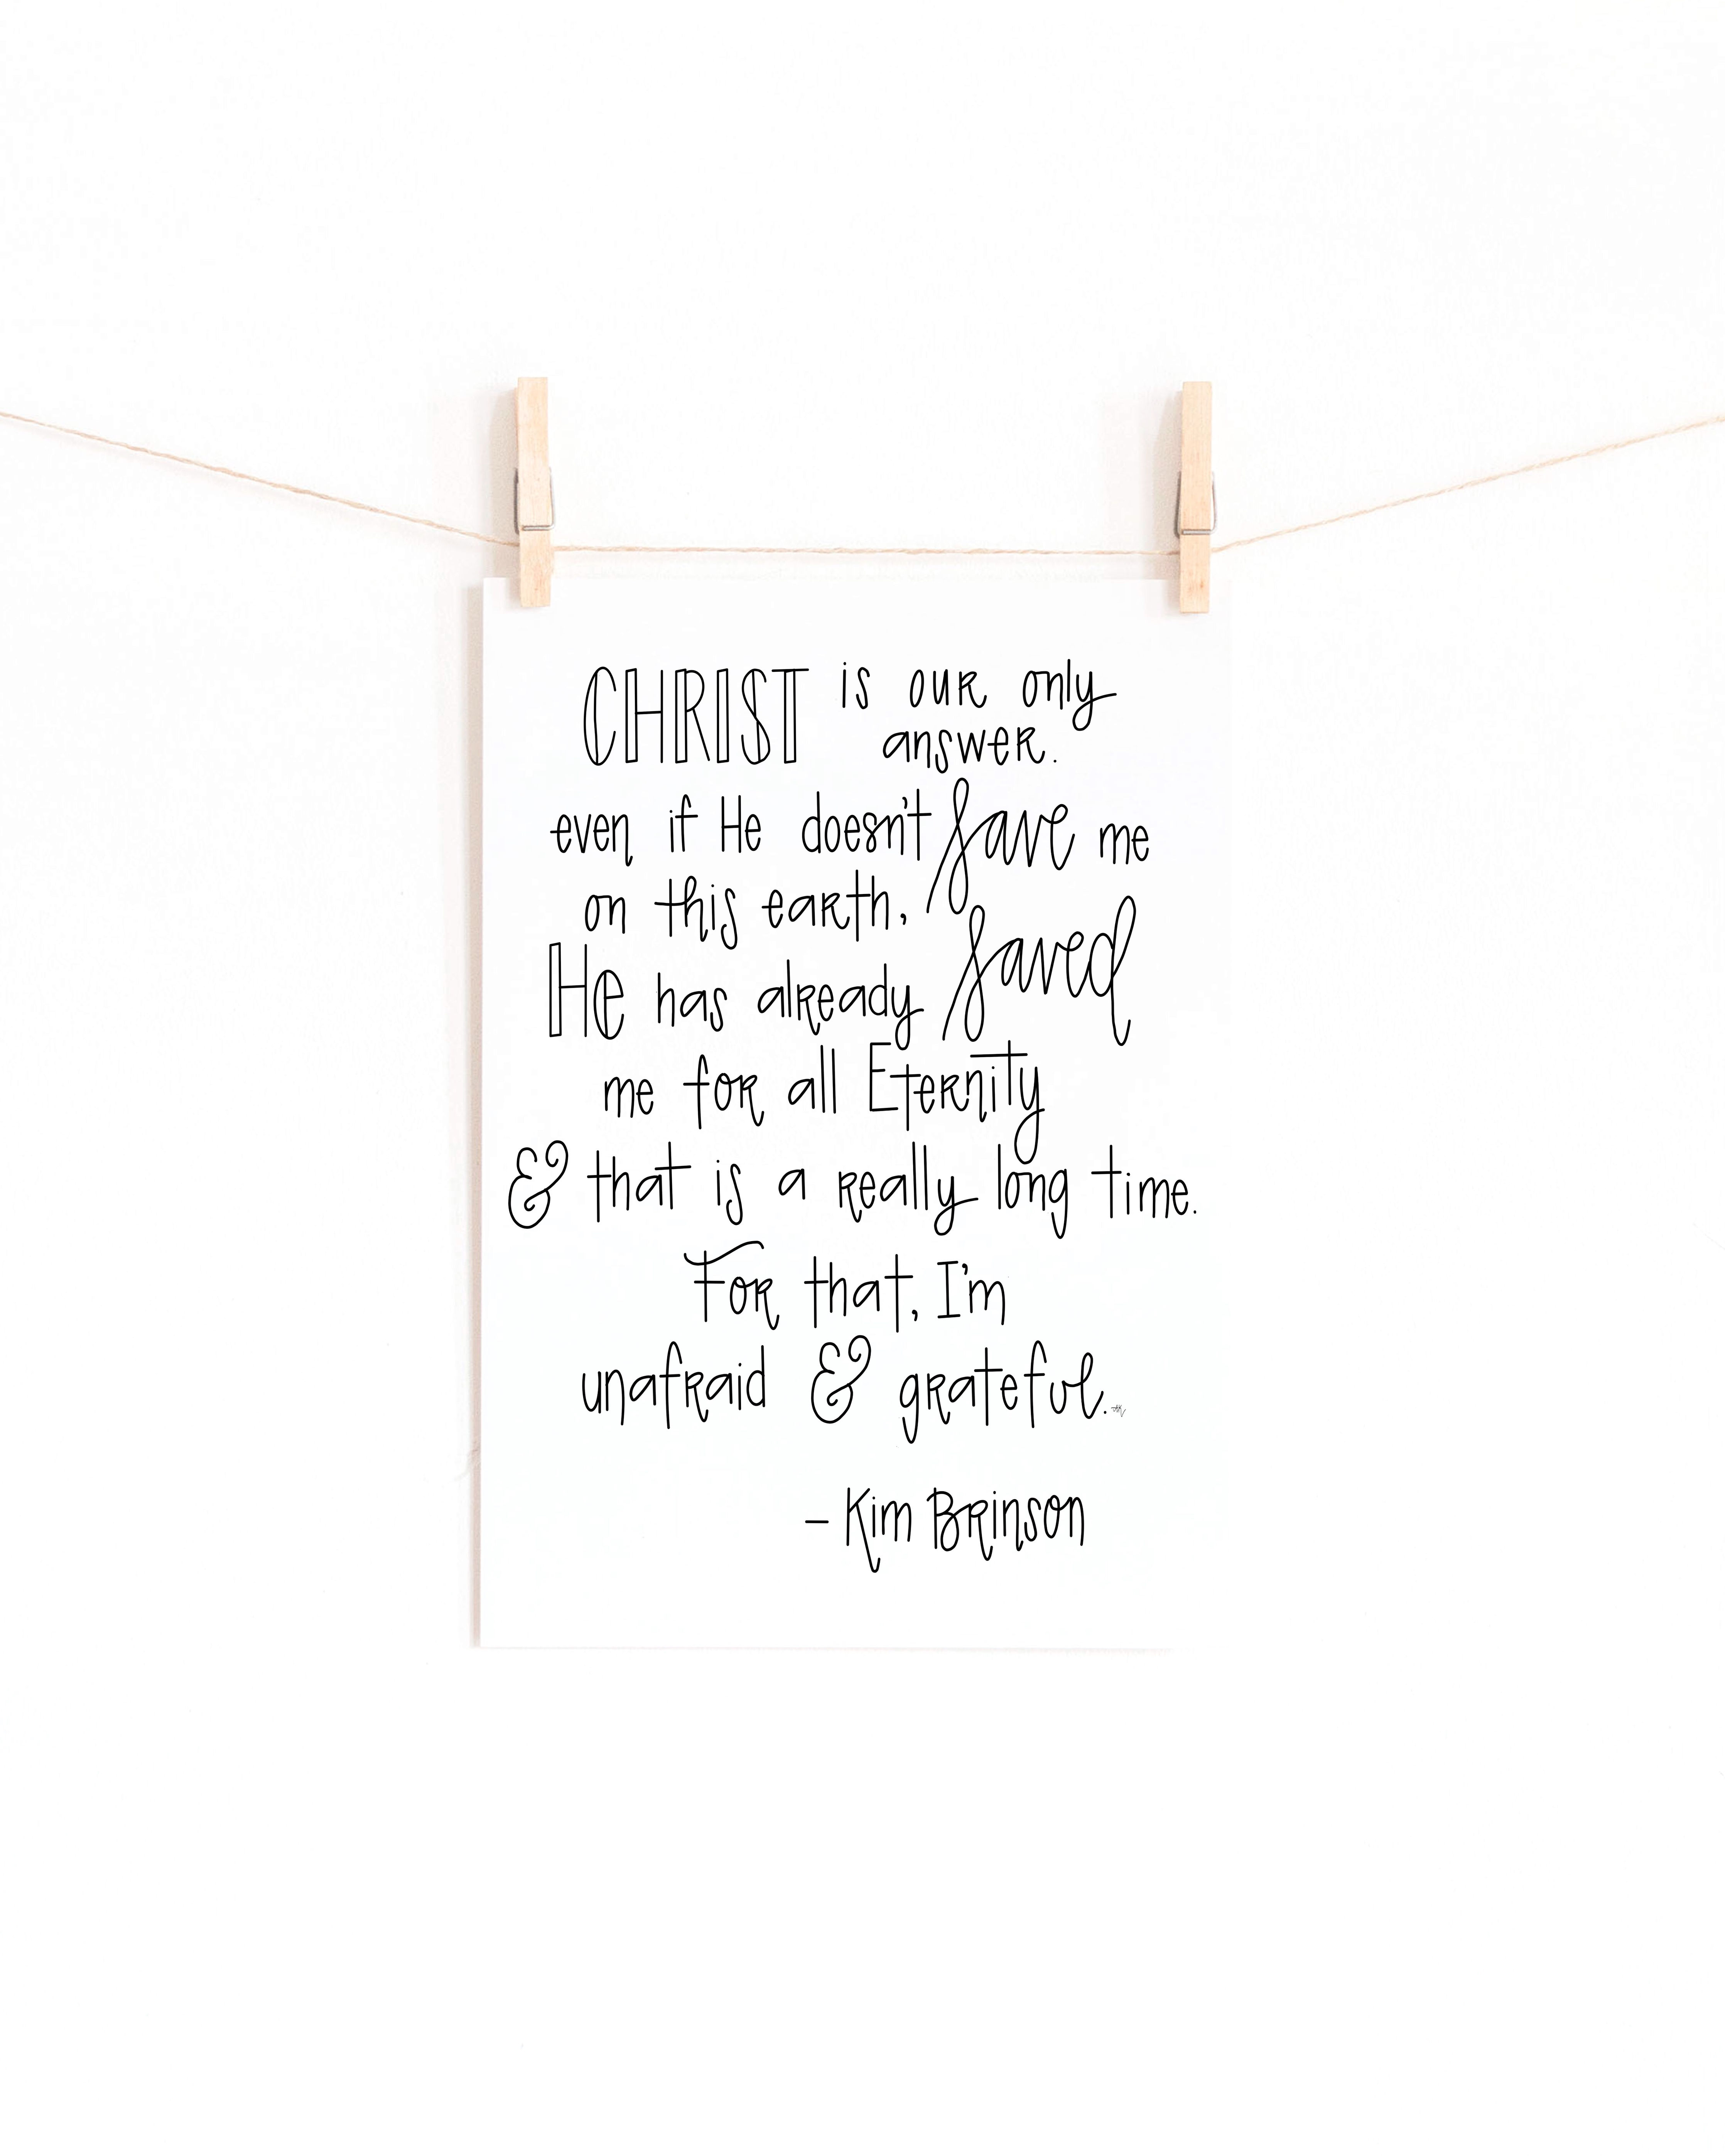 CHRIST is our only
answer.
even if He doesn't save me
on this earth,
He has already saved
me for all Eternity
& that is a really long time.
For that, I'm
unafraid & grateful.
- Kim Brinson